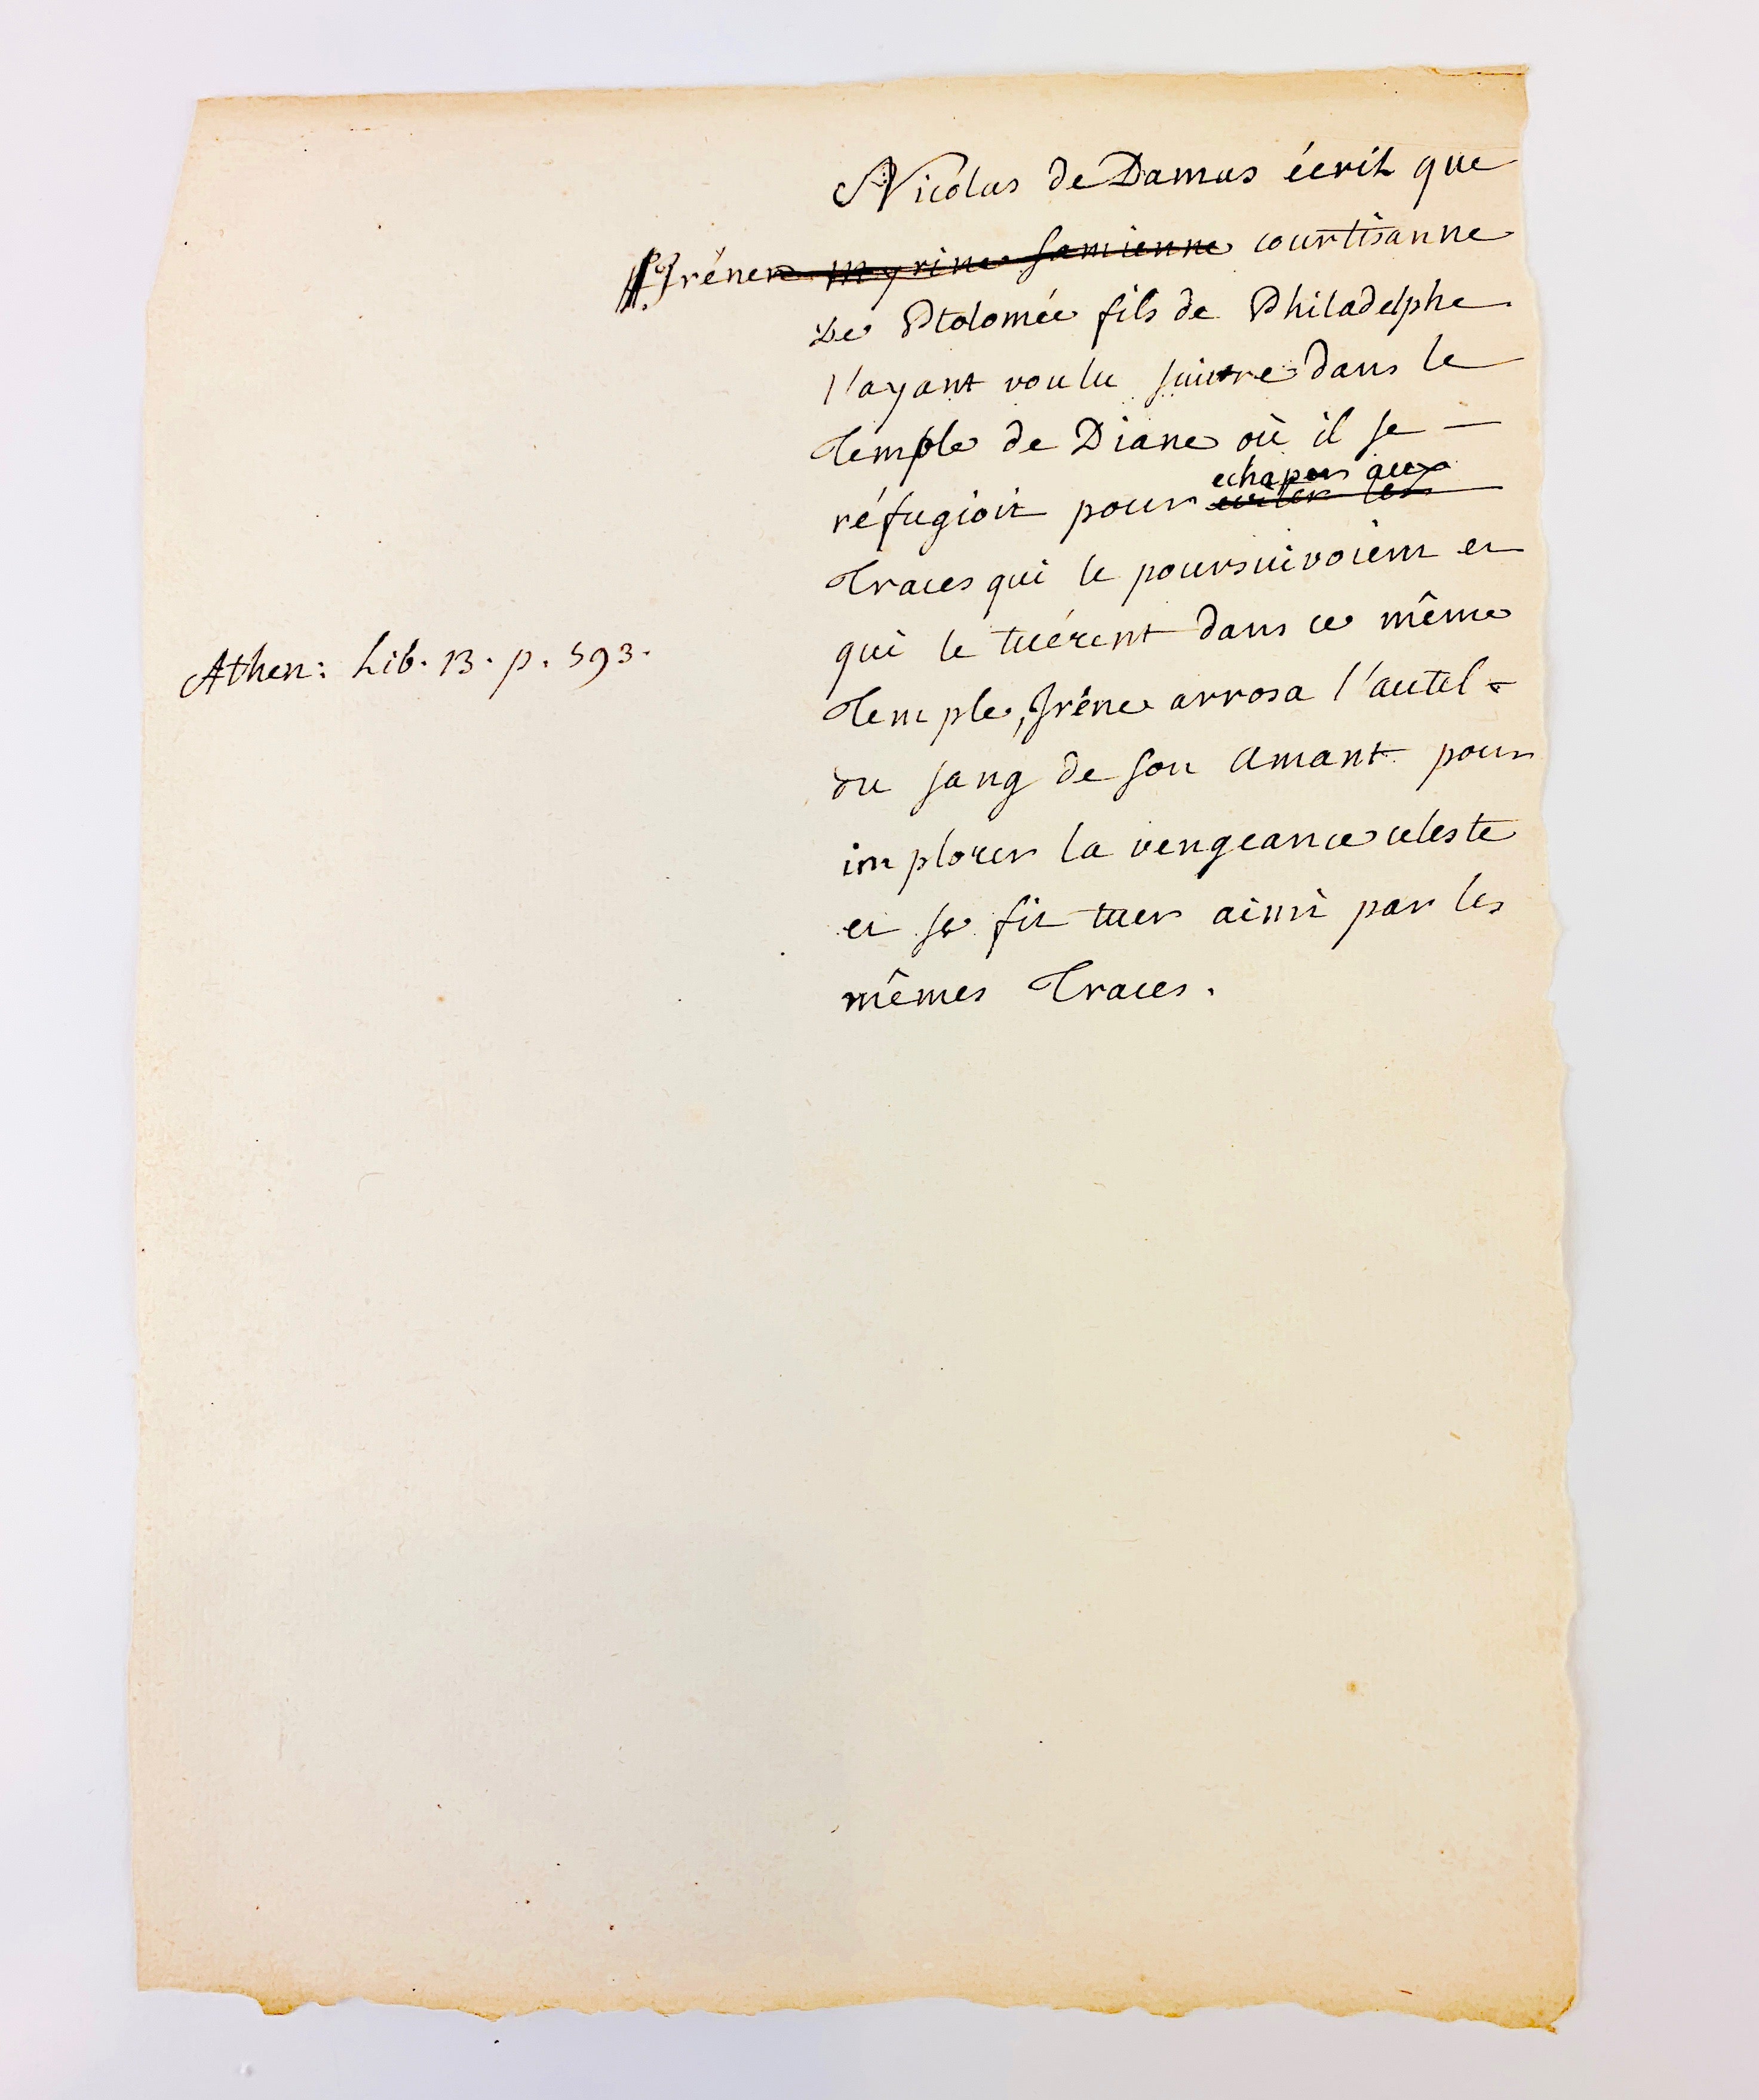 Nicolas de Damas écrit que
Iréne myrine Samienne courtisanne
De Ptolomée fils de Philadelphe
l'ayant voulu suivre dans le
Temple de Diane où il se —
echaper aux
réfugioit pour eviter les
Traces qui le poursuivoient et
Athen: Lib. 13. p. 593.
qui le tuérent dans ce même
Temple, Iréne arrosa l'autel
du sang de son Amant pour
implorer la vengeance celeste
et se fit tuer ainsi par les
mêmes Traces.